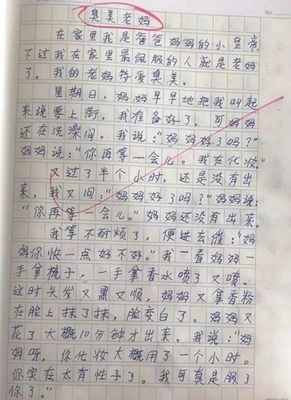 臭美老妈
在家里我是爸爸妈妈的小皇帝
不过我在家里最佩服的人就是老妈
了。我的老妈特爱臭美。
星期日，妈妈早早地把我叫起
来说要上街，我准备好了，可妈妈
还在洗澡间，我说：“妈妈好了吗？”
妈妈说：“你再等一会儿，我在化妆”
又过了半个小时，还是没有出
来，我又问：“妈妈好了吗？”妈妈说：
“你再等一会儿。”妈妈还没有出来。
我等不耐烦了，便进去催：“妈
妈你快一点好不好。”我一看妈妈一
手拿梳子，一手拿香水喷了又喷。
这时头发又黑又顺，妈妈又拿着粉
在脸上抹了抹，脸变白了。妈妈又
花了大概10分钟才出来。我说：“妈
妈呀，你化妆大概用了一个小时。
你实在太有性子了。我可真是服了
你了。”